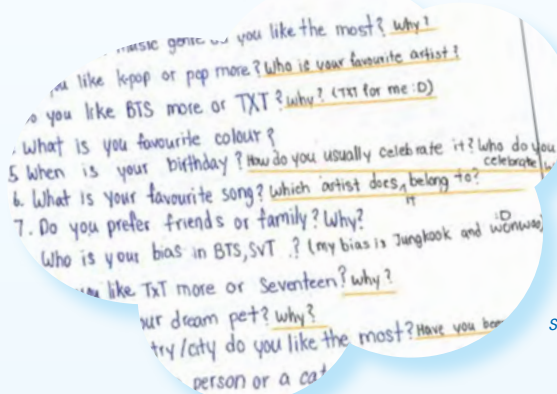 music genre do you like the most? Why?
you like kpop or pop more? Who is your favourite artist?
you like BTS more or TXT? why? (TXT for me :D)
What is you favourite colour?
5 When is your birthday? How do you usually celebrate it? Who do you celebrate
6. What is your favourite song? which artist does it belong to?
7. Do you prefer friends or family? Why?
Who is your bias in BTS, SVT .? (my bias is Jungkook and wonwoo :D
like TXT more or Seventeen? why?
dream pet? why?
city do you like the most? Have you
person or a cat
S